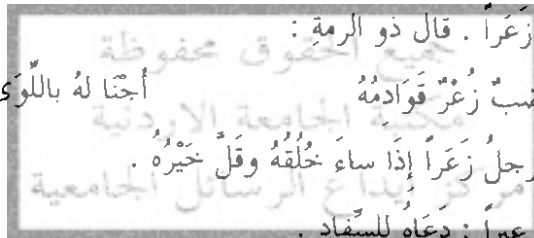 زَعَراً . قال ذو الرمةِ :
زُعْرٌ قَوَادِمُهُ أَجْنَا لهُ باللِّوَى
زَعَراً إِذَا ساءَ خُلُقُهُ وقَلَّ خَيْرُهُ .
: دَعَاهُ للسِّفاد .
جميع الحقوق محفوظة
مكتبة الجامعة الاردنية
مركز ايداع الرسائل الجامعية